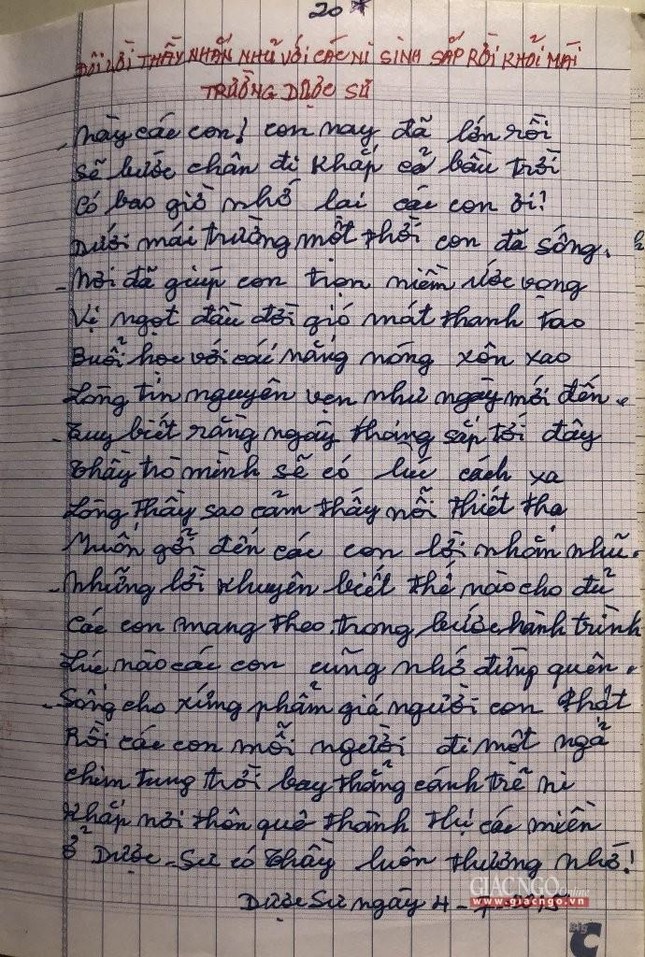 20
ĐÔI LỜI THẦY NHẮN NHỦ VỚI CÁC NI SINH SẮP RỜI KHỎI MÁI
TRƯỜNG DƯỢC SƯ
- Này các con! con nay đã lớn rồi
Sẽ bước chân đi khắp cả bầu trời
Có bao giờ nhớ lại các con ơi?
Dưới mái trường một thời con đã sống.
- Nơi đã giúp con trọn niềm ước vọng
Vị ngọt đầu đời gió mát thanh tao
Buổi học với cái nắng nóng xôn xao
Lòng tin nguyên vẹn như ngày mới đến.
- Tuy biết rằng ngày tháng sắp tới đây
Thầy trò mình sẽ có lúc cách xa
Lòng Thầy sao cảm thấy nỗi thiết tha
Muốn gởi đến các con lời nhắn nhủ.
- Những lời khuyên biết thế nào cho đủ
Các con mang theo trong bước hành trình
Lúc nào các con cũng nhớ đừng quên.
- Sống cho xứng phẩm giá người con Phật
Rồi các con mỗi người đi một ngả
Chim tung trời bay thẳng cánh trẻ ni
Khắp nơi thôn quê thành thị các miền
Ở Dược-Sư có Thầy luôn thương nhớ!
Dược Sư ngày 4 -
GIÁC NGỘ Online
www.giacngo.vn